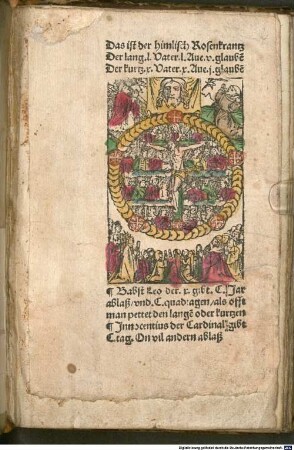 Das ist der himlisch Rosenkrantz
Der lang .l. Vater .l. Aue .v. glaubē
Der kurtz .x. Vater .x. Aue .j. glaubē
¶ Babst Leo der .x. gibt. C. Jar
ablaß / vnd .C. quadragen / als offt
man pettet den langē oder kurtzen
¶ Innocentius der Cardinal gibt
C. tag. On vil andern ablaß